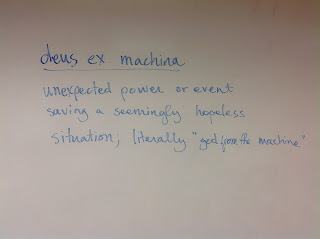 deus ex machina
unexpected power or event
saving a seemingly hopeless
situation; literally "god from the machine"